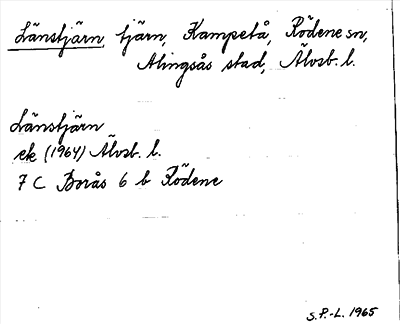 Länstjärn, tjärn, Kampetå, Rödene sn,
Alingsås stad, Älvsb. l.
Länstjärn
ek (1964) Älvsb. l.
7 C Borås 6 b Rödene
S.P.-L. 1965